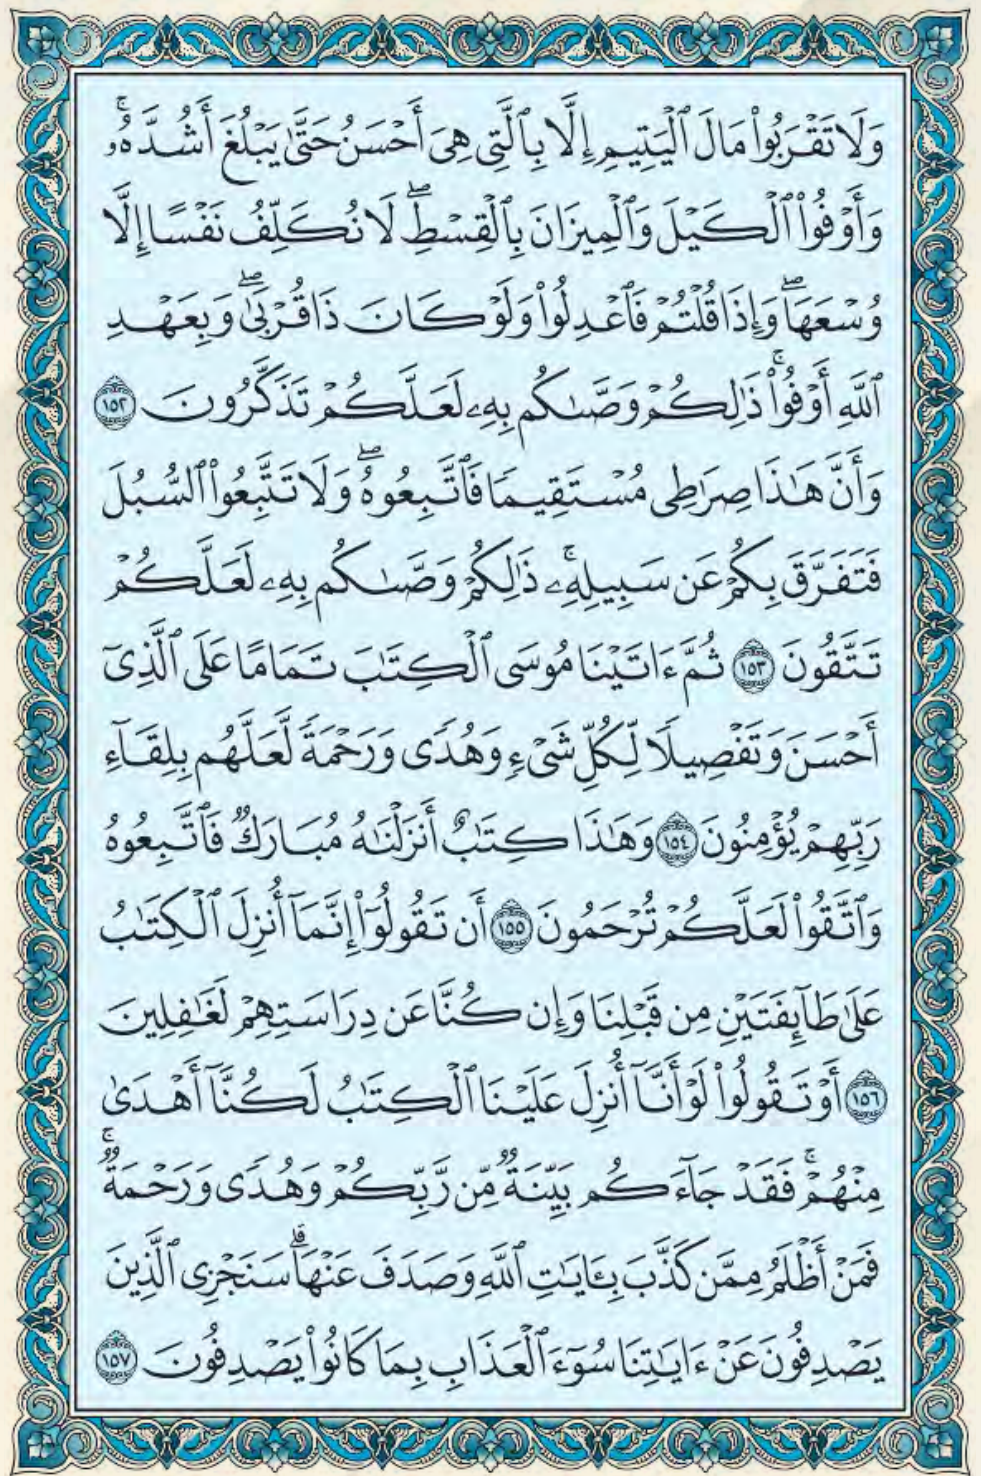 وَلَا تَقۡرَبُواْ مَالَ ٱلۡيَتِيمِ إِلَّا بِٱلَّتِي هِيَ أَحۡسَنُ حَتَّىٰ يَبۡلُغَ أَشُدَّهُۥۚ
وَأَوۡفُواْ ٱلۡكَيۡلَ وَٱلۡمِيزَانَ بِٱلۡقِسۡطِۖ لَا نُكَلِّفُ نَفۡسًا إِلَّا
وُسۡعَهَاۖ وَإِذَا قُلۡتُمۡ فَٱعۡدِلُواْ وَلَوۡ كَانَ ذَا قُرۡبَىٰۖ وَبِعَهۡدِ
ٱللَّهِ أَوۡفُواْۚ ذَٰلِكُمۡ وَصَّىٰكُم بِهِۦ لَعَلَّكُمۡ تَذَكَّرُونَ ١٥٢
وَأَنَّ هَٰذَا صِرَٰطِي مُسۡتَقِيمٗا فَٱتَّبِعُوهُۖ وَلَا تَتَّبِعُواْ ٱلسُّبُلَ
فَتَفَرَّقَ بِكُمۡ عَن سَبِيلِهِۦۚ ذَٰلِكُمۡ وَصَّىٰكُم بِهِۦ لَعَلَّكُمۡ
تَتَّقُونَ ١٥٣ ثُمَّ ءَاتَيۡنَا مُوسَى ٱلۡكِتَٰبَ تَمَامًا عَلَى ٱلَّذِيٓ
أَحۡسَنَ وَتَفۡصِيلٗا لِّكُلِّ شَيۡءٖ وَهُدٗى وَرَحۡمَةٗ لَّعَلَّهُم بِلِقَآءِ
رَبِّهِمۡ يُؤۡمِنُونَ ١٥٤ وَهَٰذَا كِتَٰبٌ أَنزَلۡنَٰهُ مُبَارَكٞ فَٱتَّبِعُوهُ
وَٱتَّقُواْ لَعَلَّكُمۡ تُرۡحَمُونَ ١٥٥ أَن تَقُولُوٓاْ إِنَّمَآ أُنزِلَ ٱلۡكِتَٰبُ
عَلَىٰ طَآئِفَتَيۡنِ مِن قَبۡلِنَا وَإِن كُنَّا عَن دِرَاسَتِهِمۡ لَغَٰفِلِينَ
١٥٦ أَوۡ تَقُولُواْ لَوۡ أَنَّآ أُنزِلَ عَلَيۡنَا ٱلۡكِتَٰبُ لَكُنَّآ أَهۡدَىٰ
مِنۡهُمۡۚ فَقَدۡ جَآءَكُم بَيِّنَةٞ مِّن رَّبِّكُمۡ وَهُدٗى وَرَحۡمَةٞۚ
فَمَنۡ أَظۡلَمُ مِمَّن كَذَّبَ بِـَٔايَٰتِ ٱللَّهِ وَصَدَفَ عَنۡهَاۗ سَنَجۡزِي ٱلَّذِينَ
يَصۡدِفُونَ عَنۡ ءَايَٰتِنَا سُوٓءَ ٱلۡعَذَابِ بِمَا كَانُواْ يَصۡدِفُونَ ١٥٧